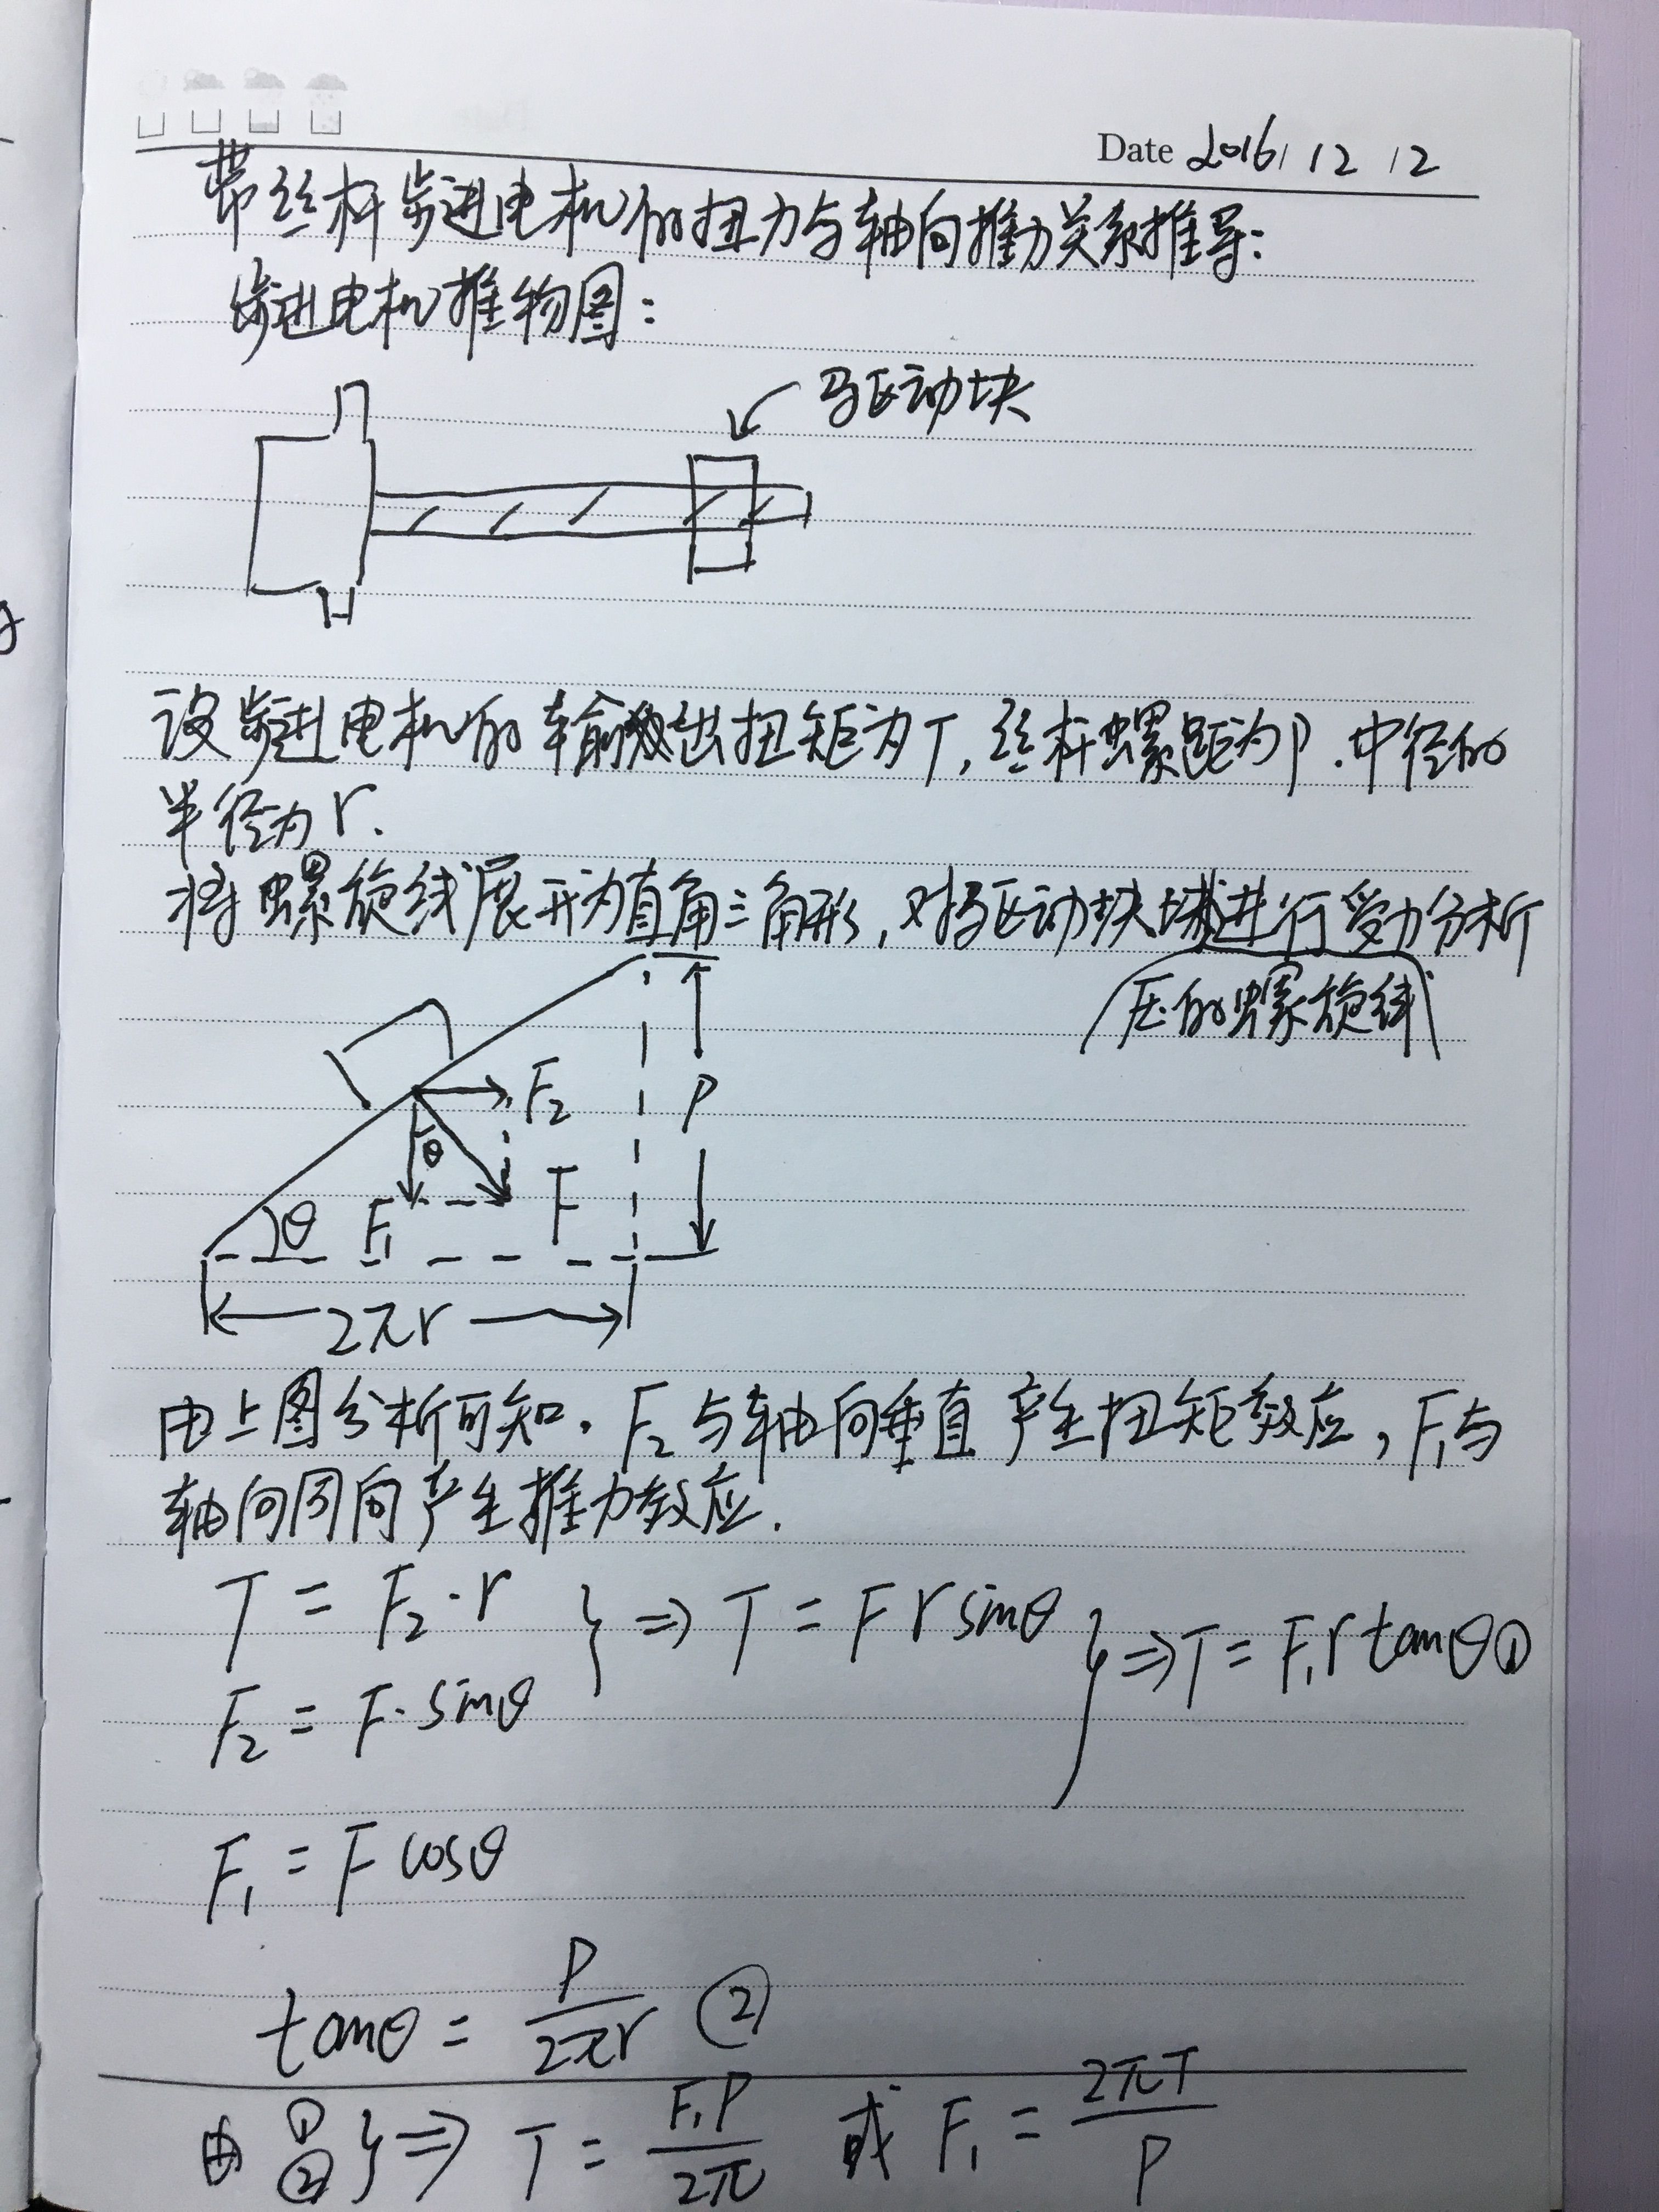 Date 2016/12/12
带丝杆步进电机的扭力与轴向推力关系推导:
步进电机推物图:
驱动块
设步进电机的输出扭矩为T,丝杆螺距为P.中径的
半径为r.
将螺旋线展开为直角三角形,对驱动块进行受力分析
压的螺旋线
F₂
P
θ
θ
F₁
F
2πr
由上图分析可知,F₂与轴向垂直产生扭矩效应,F₁与
轴向同向产生推力效应.
T = F₂·r } ⇒ T = F r sinθ } ⇒ T = F₁ r tanθ ①
F₂ = F·sinθ
F₁ = F cosθ
tanθ = P/2πr ②
由 ① ② } ⇒ T = F₁P/2π 或 F₁ = 2πT/P